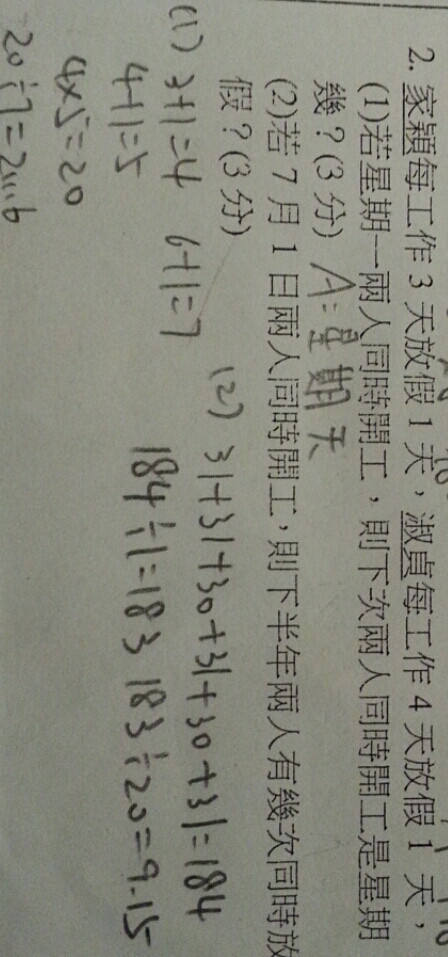 2. 家穎每工作 3 天放假 1 天，淑貞每工作 4 天放假 1 天，
(1)若星期一兩人同時開工，則下次兩人同時開工是星期
幾？(3 分) A：星期天
(2)若 7 月 1 日兩人同時開工，則下半年兩人有幾次同時放
假？(3 分)
(1) 3+1=4 6+1=7
4+1=5
4×5=20
20÷7=2…6
(2) 31+31+30+31+30+31=184
184÷1=183 183÷20=9.15